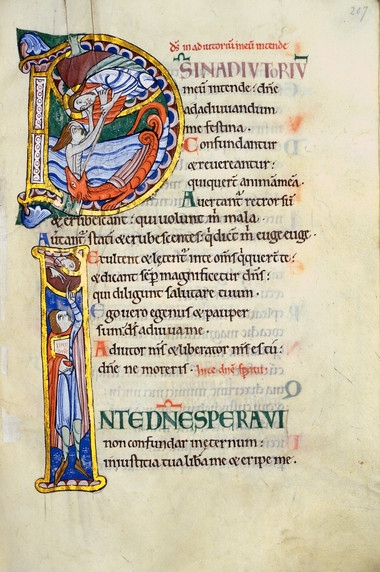 227
d̄s in adiutoriū meū intende
D̄S IN ADIUTORIŪ
meū intende: dn̄e
adadiuuandum
me festina.
Confundantur
& reuereantur:
qui quert̄ animā mea.
Auertant̄ retrorsū
& erubescant: qui uolunt m̄ mala.
Auertant̄ statī & erubescentes: q̄ dict̄ m̄ euge euge.
Exultent & letent̄ inte om̄s q̄ querēt te:
& dicant sēp magnificetur dn̄s:
qui diligunt salutare tuum.
Ego uero egenus & pauper
sum: d̄s adiuua me.
Adiutor m̄s & liberator m̄s es tu:
dn̄e ne moreris. Inte dn̄e spaui:
INTE DN̄E SPERAVI
non confundar ineternum:
iniusticia tua liba me & eripe me.